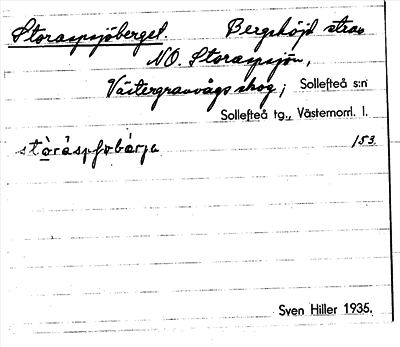 Storaspsjöberget. Bergshöjd strax
NO. Storaspsjön,
Västergranvågs skog; Sollefteå s:n
Sollefteå tg., Västernorrl. l.
153.
Sven Hiller 1935.